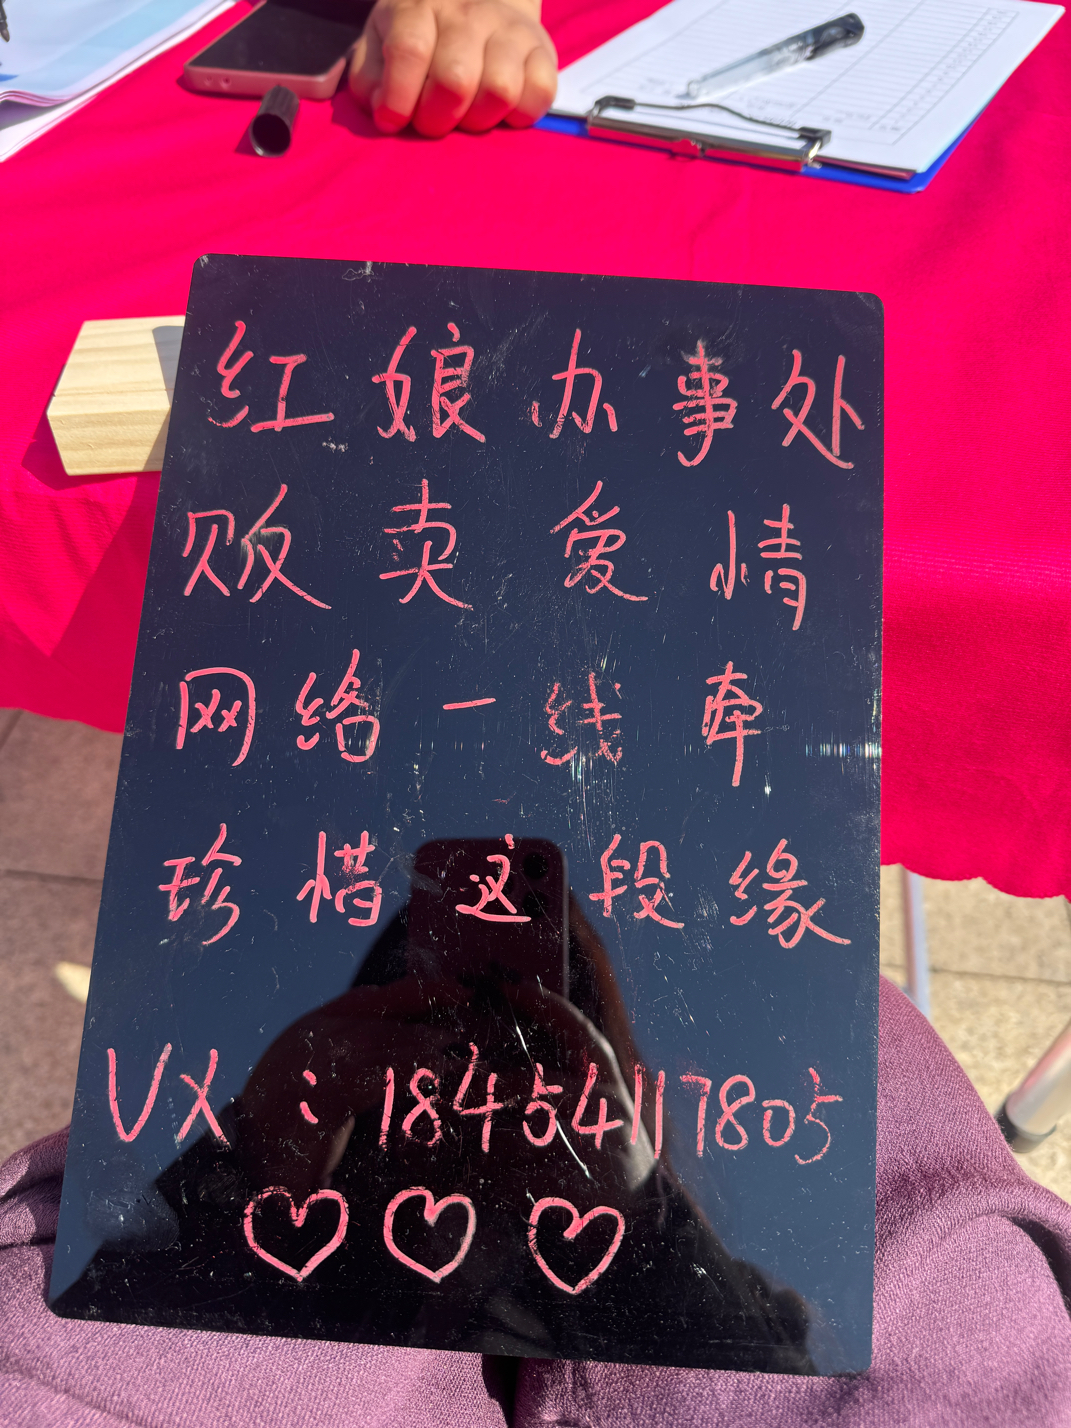 红娘办事处
贩卖爱情
网络一线牵
珍惜这段缘
VX：18454117805
♡♡♡